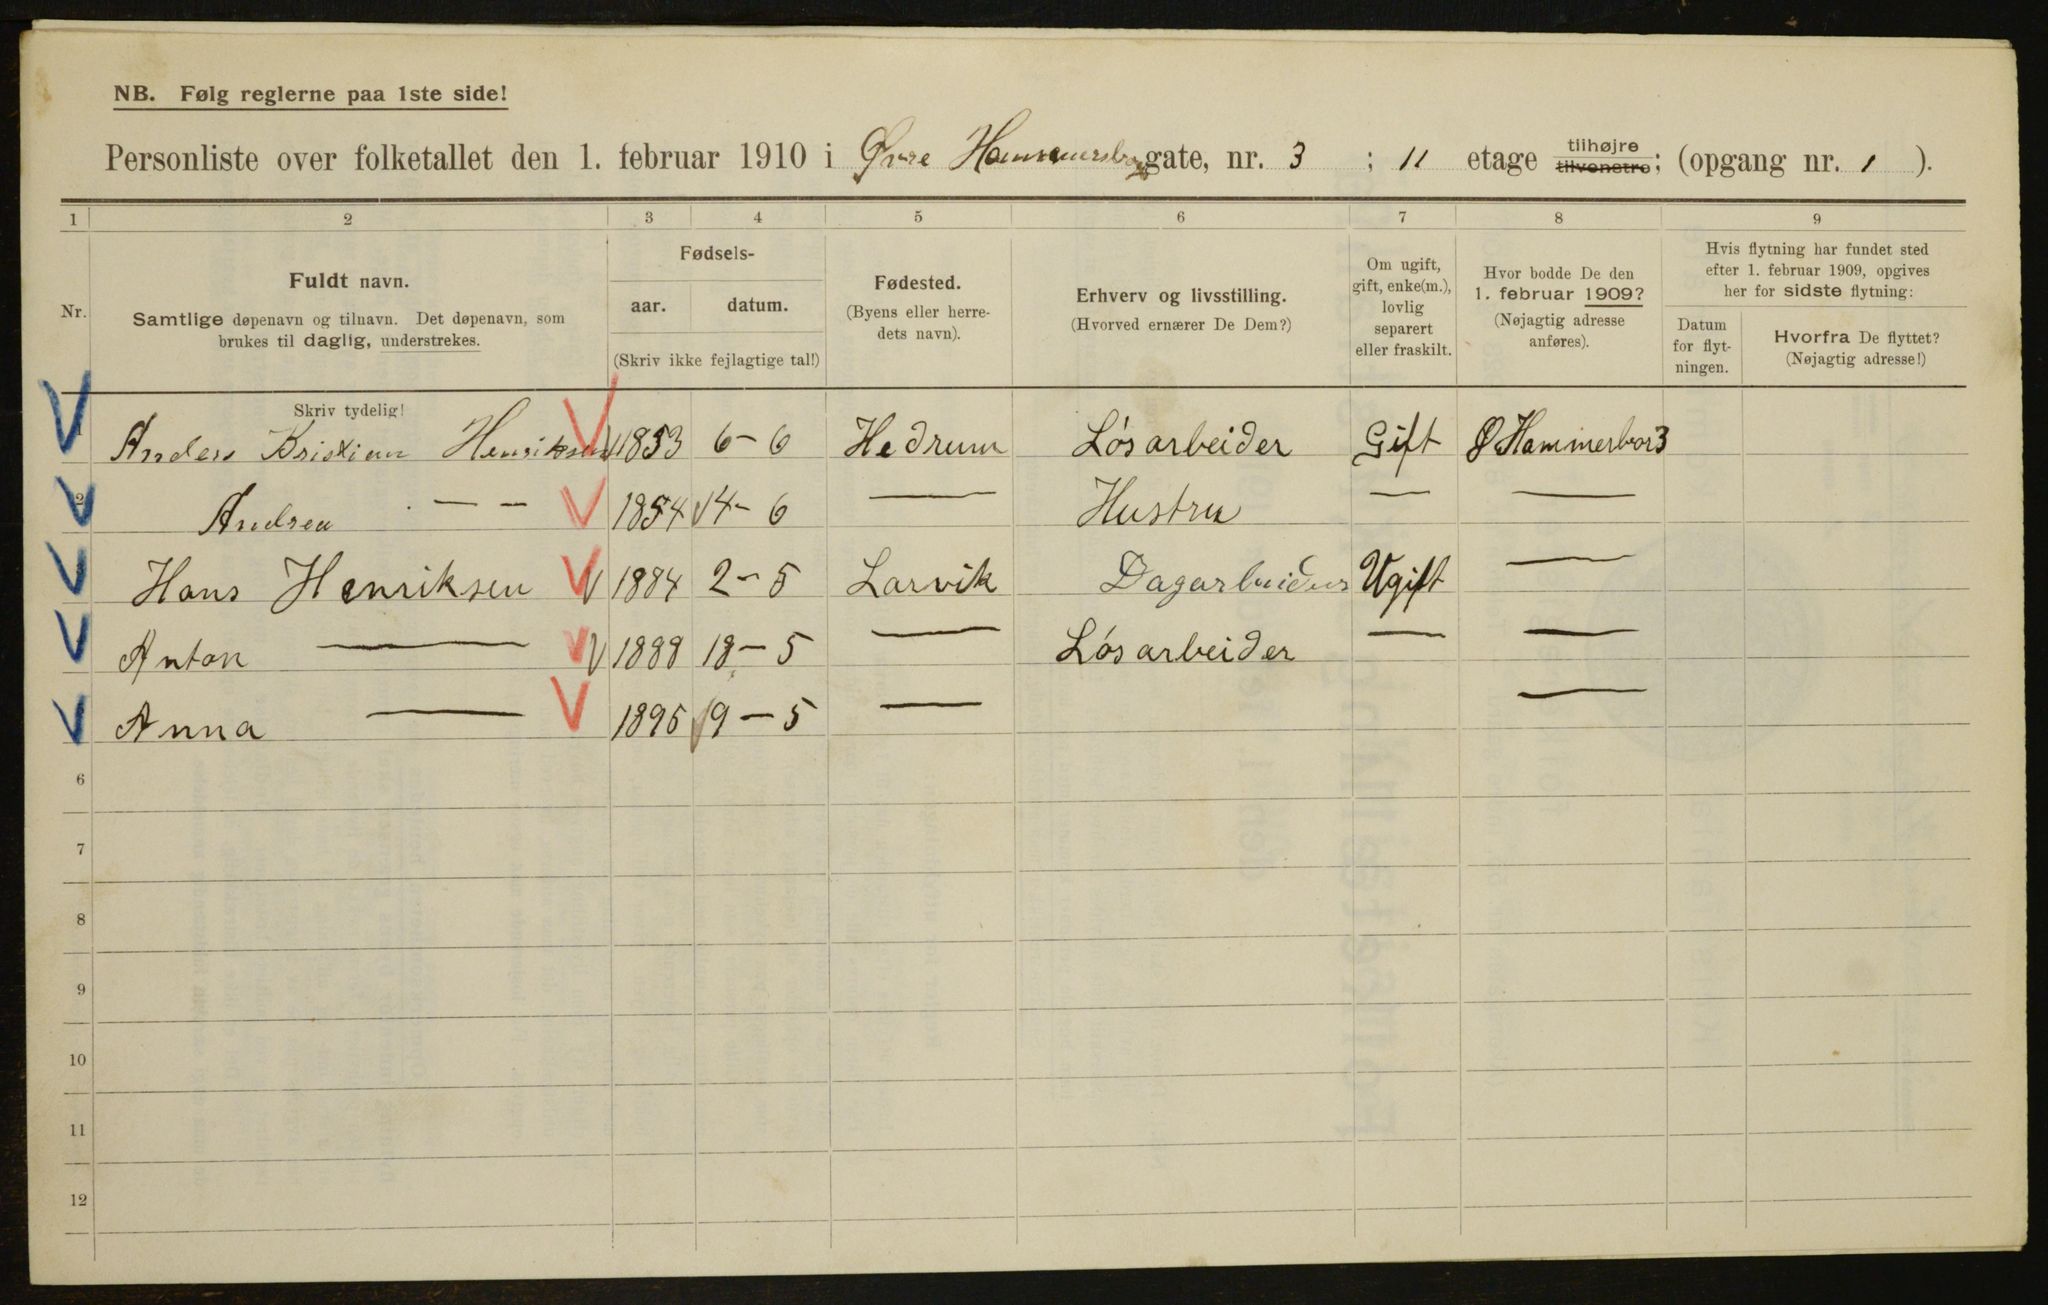 NB. Følg reglerne paa 1ste side!
Personliste over folketallet den 1. februar 1910 i Øvre Hammersborg gate, nr. 3 ; 11 etage tilhøjre tilvenstre; (opgang nr. 1 ).
1 2 3 4 5 6 7 8 9
Nr.
Fuldt navn.
Samtlige døpenavn og tilnavn. Det døpenavn, som
brukes til daglig, understrekes.
Skriv tydelig!
Fødsels-
aar. datum.
(Skriv ikke fejlagtige tal!)
Fødested.
(Byens eller herre-
dets navn).
Erhverv og livsstilling.
(Hvorved ernærer De Dem?)
Om ugift,
gift, enke(m.),
lovlig
separert
eller fraskilt.
Hvor bodde De den
1. februar 1909?
(Nøjagtig adresse
anføres).
Hvis flytning har fundet sted
efter 1. februar 1909, opgives
her for sidste flytning:
Datum
for flyt-
ningen.
Hvorfra De flyttet?
(Nøjagtig adresse!)
1 Anders Kristian Henriksen 1853 6-6 Hedrum Løsarbeider Gift Ø Hammerbor 3
2 Andrea — — 1854 14-6 — Hustru — —
Hans Henriksen 1884 2-5 Larvik Dagarbeider Ugift —
Anton — 1888 18-5 — Løsarbeider — —
Anna — 1895 19-5 — —
6
7
8
9
10
11
12